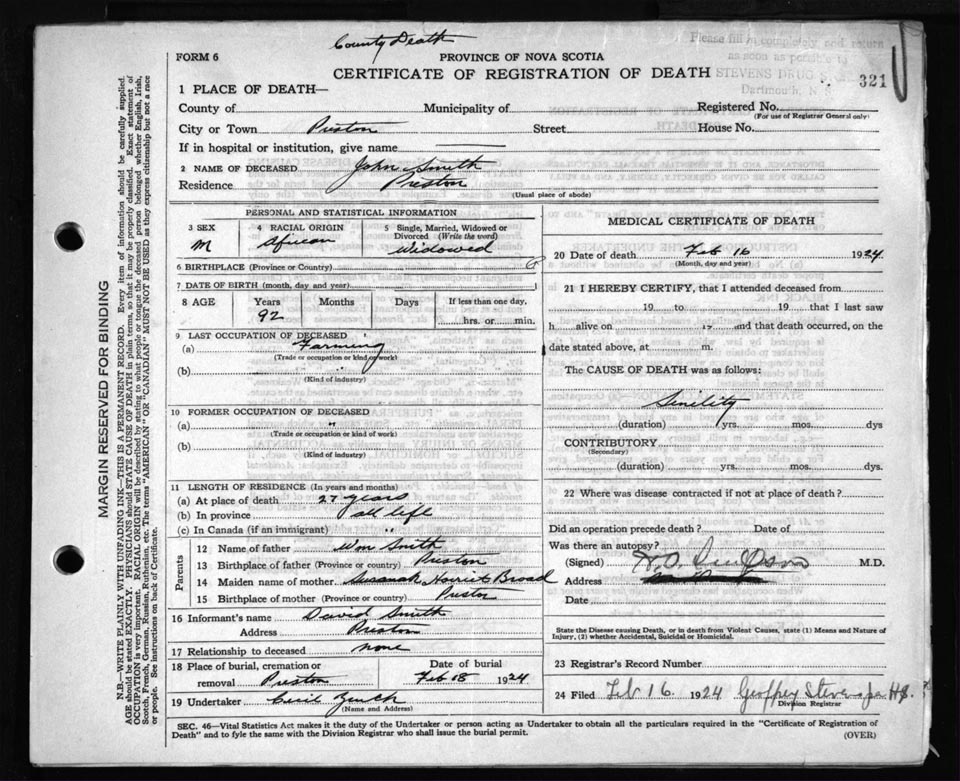 County Death
Please fill in completely and return
FORM 6
PROVINCE OF NOVA SCOTIA
as soon as possible to
CERTIFICATE OF REGISTRATION OF DEATH
STEVENS DRUG
321
Dartmouth, N.
1 PLACE OF DEATH—
County of Municipality of Registered No.
(For use of Registrar General only)
City or Town Preston Street House No.
If in hospital or institution, give name
2 NAME OF DECEASED John Smith
Residence Preston
(Usual place of abode)
PERSONAL AND STATISTICAL INFORMATION
3 SEX 4 RACIAL ORIGIN 5 Single, Married, Widowed or
Divorced (Write the word)
M African Widowed
6 BIRTHPLACE (Province or Country)
7 DATE OF BIRTH (month, day and year)
8 AGE Years Months Days If less than one day,
92 hrs. or min.
9 LAST OCCUPATION OF DECEASED
(a) Farming
(Trade or occupation or kind of work)
(b)
(Kind of industry)
10 FORMER OCCUPATION OF DECEASED
(a) "
(Trade or occupation or kind of work)
(b)
(Kind of industry)
11 LENGTH OF RESIDENCE (In years and months)
(a) At place of death 27 years
(b) In province all life
(c) In Canada (if an immigrant) "
Parents
12 Name of father Wm Smith
13 Birthplace of father (Province or country) Preston
14 Maiden name of mother Susanah Harriet Broad
15 Birthplace of mother (Province or country) Preston
16 Informant's name David Smith
Address Preston
17 Relationship to deceased none
18 Place of burial, cremation or Date of burial
removal Preston Feb 18 1924
19 Undertaker
(Name and Address)
MEDICAL CERTIFICATE OF DEATH
20 Date of death Feb 16 1924
(Month, day and year)
21 I HEREBY CERTIFY, that I attended deceased from
19 to 19 that I last saw
h alive on 19 and that death occurred, on the
date stated above, at m.
The CAUSE OF DEATH was as follows:
Senility
(duration) yrs. mos. dys
CONTRIBUTORY
(Secondary)
(duration) yrs. mos. dys.
22 Where was disease contracted if not at place of death?
Did an operation precede death? Date of
Was there an autopsy?
(Signed) M.D.
Address
Date
State the Disease causing Death, or in death from Violent Causes, state (1) Means and Nature of
Injury, (2) whether Accidental, Suicidal or Homicidal.
23 Registrar's Record Number
24 Filed Feb 16. 1924 Geoffrey Stevens
Division Registrar
SEC. 46—Vital Statistics Act makes it the duty of the Undertaker or person acting as Undertaker to obtain all the particulars required in the "Certificate of Registration of
Death" and to fyle the same with the Division Registrar who shall issue the burial permit.
(OVER)
MARGIN RESERVED FOR BINDING
N.B.—WRITE PLAINLY WITH UNFADING INK—THIS IS A PERMANENT RECORD. Every item of information should be carefully supplied.
AGE should be stated EXACTLY. PHYSICIANS should STATE CAUSE OF DEATH in plain terms, so that it may be properly classified. Exact statement of
OCCUPATION is very important. RACIAL ORIGIN will be described by stating to what people or tongue the deceased person belonged whether English, Irish,
Scotch, French, German, Russian, Ruthenian, etc. The terms "AMERICAN" OR "CANADIAN" MUST NOT BE USED as they express citizenship but not a race
or people. See instructions on back of Certificate.